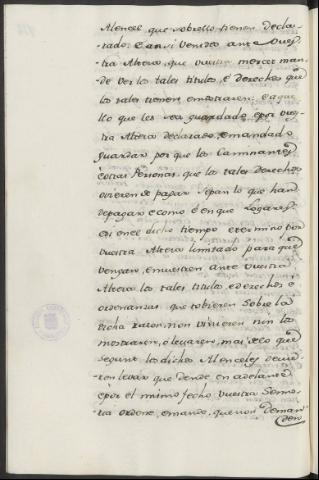 Alencel que sobrello tienen decla-
-rado: E ansi venido ante Vues-
-tra Alteza, que vuestra merced man-
de ver los tales titulos, e derechos que
los tales tienen e mostraren, e aque
llo que les sea guardado, e por vues
tra Alteza declarado, e mandado
guardar por que los Caminantes
e otras Personas que los tales derechos
ovieren de pagar sepan lo que han
de pagar e como e en que Logares
es en el dicho tiempo e termino por
vuestra Alteza limitado para que
vengan, e muestren ante vuestra
Alteza los tales titulos, e derechos e
ordenanzas que tobieren sobre la
dicha razon, non vinieren nin los
mostraren, o levaren, mas de lo que
segunt los dichos Alenceles devie
-ren levar que dende en adelante
e por el mismo fecho vuestra Seño-
ria ordene, e mande, que non deman
den